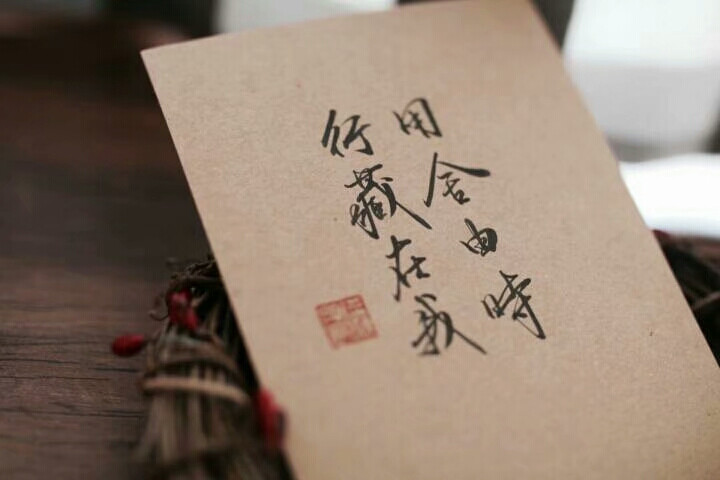 用舍由時
行藏在我